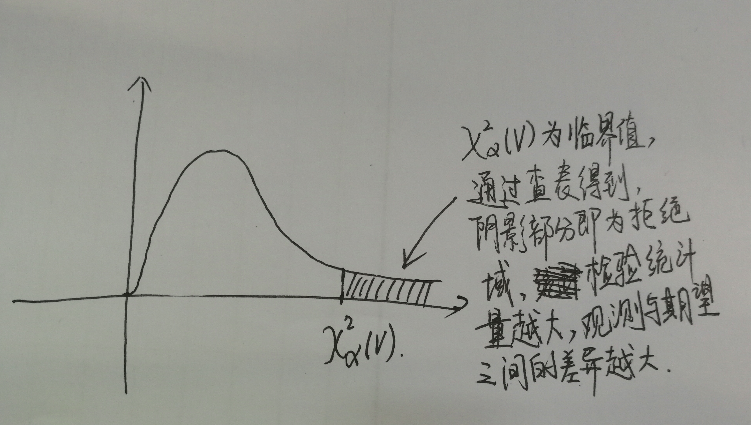 χ²α(V)为临界值,
通过查表得到,
阴影部分即为拒绝
域, 检验统计
量越大,观测与期望
之间的差异越大.
χ²α(V).